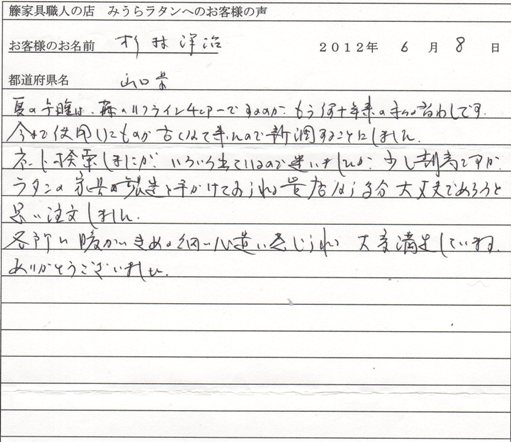 籐家具職人の店 みうらラタンへのお客様の声
お客様のお名前 杉林洋治 2012年 6月 8日
都道府県名 山口県
夏の午睡は、籐のリクライニングチェアーでするのが、もう何十年来の習わしです。
今まで使用したものが古くなって来たので新調することにしました。
ネット検索しましたが、いろいろ出ているので迷いましたが、少し割高ですが、
ラタンの家具の製造を手がけておられる貴店なら多分大丈夫であろうと
思い注文しました。
各所に暖かいきめの細い心遣い感じられ 大変満足しています。
ありがとうございました。